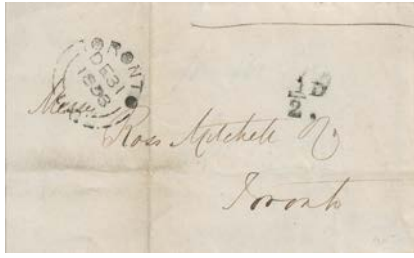 TORONTO
DE 31
1858
1/2 D.
Messrs
Ross Mitchell & Co
Toronto